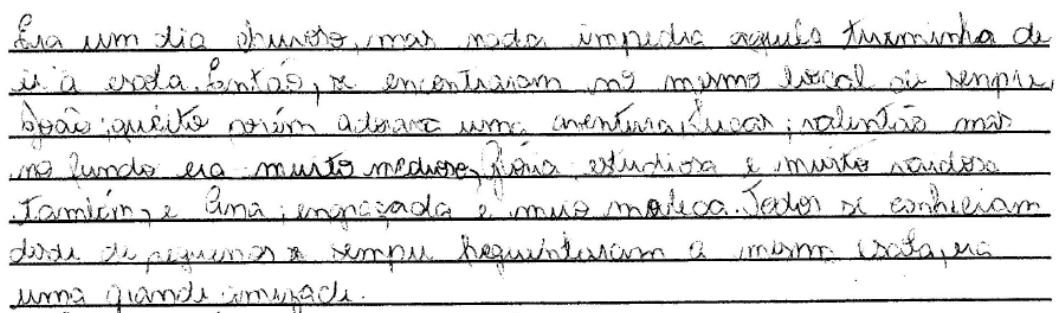 Era um dia chuvoso, mas nada impedia aquela turminha de
ir a escola. Então, se encontraram no mesmo local de sempre,
João; quieto porém adorava uma aventura, Lucas; valentão mas
no fundo era muito medroso, estudiosa e muito vaidosa
também, e Ana; engraçada e meio moleca. Todos se conheciam
desde de pequenos e sempre frequentaram a mesm escola, era
uma grande amizade.